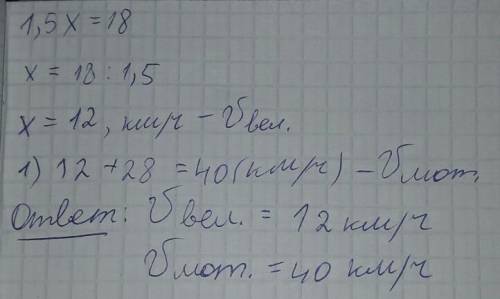 1,5x = 18
x = 18 : 1,5
x = 12, км/ч - Vвел.
1) 12 + 28 = 40 (км/ч) - Vмот.
Ответ: Vвел. = 12 км/ч
Vмот. = 40 км/ч